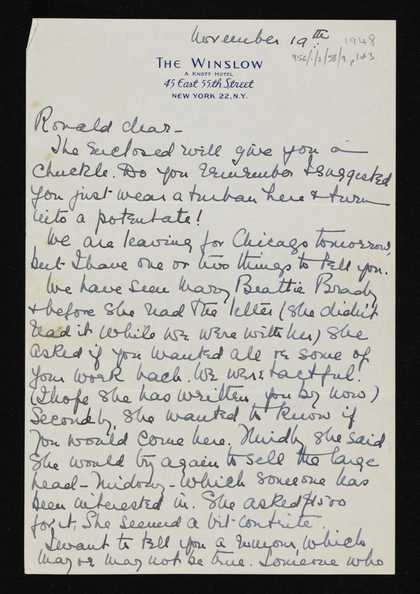 November 19th 1948
THE WINSLOW
A KNOTT HOTEL
45 East 55th Street
NEW YORK 22, N.Y.
Ronald dear -
The enclosed will give you a
chuckle. Do you remember I suggested
you just wear a turban here & turn
into a potentate!
We are leaving for Chicago tomorrow,
but I have one or two things to tell you.
We have seen Mary Beattie Brady
& before she read the letter (she didn't
read it while we were with her) she
asked if you wanted all or some of
your work back. We were tactful.
(I hope she has written you by now)
Secondly, she wanted to know if
you would come here. Thirdly she said
she would try again to sell the large
head - Midonz - which someone has
been interested in. She asked $1500
for it. She seemed a bit contrite.
I want to tell you a rumour, which
may or may not be true. Someone who